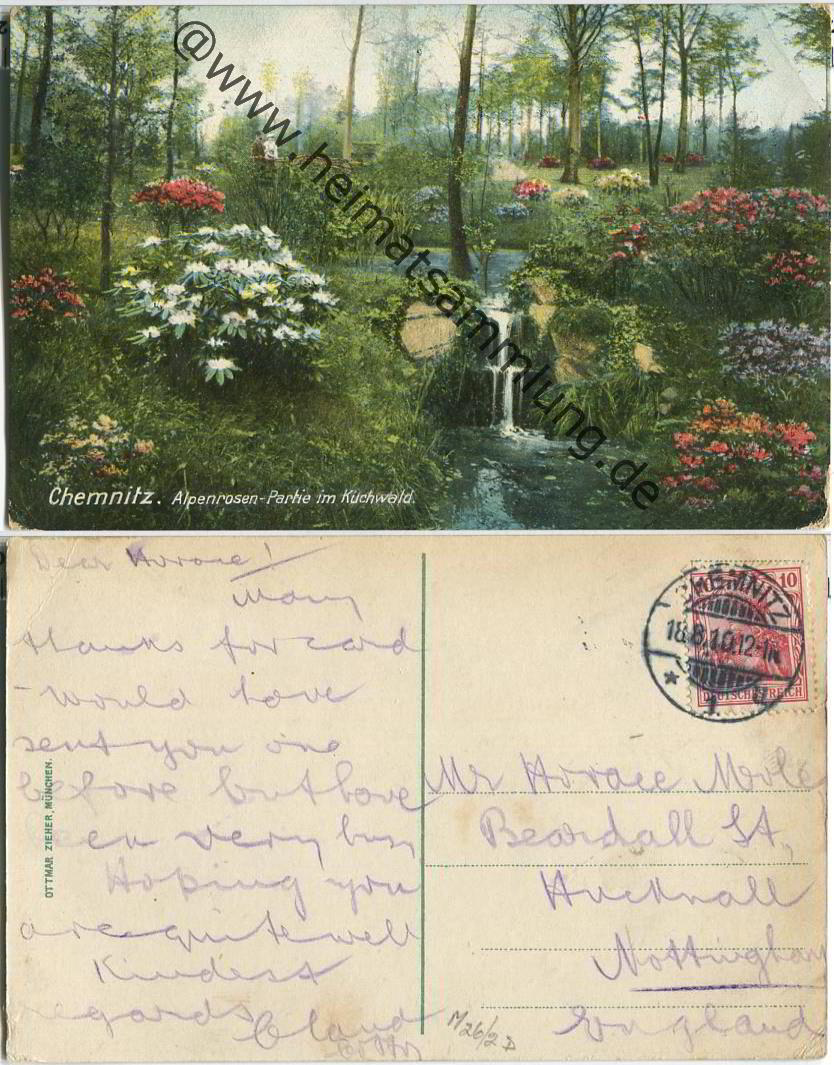 @www.heimatsammlung.de
Chemnitz. Alpenrosen-Partie im Küchwald.
Dear Horace!
Many
thanks for card
- Would have
sent you one
before but have
een very busy
Hoping you
are quite well
Kindest
regards
OTTMAR ZIEHER, MÜNCHEN.
CHEMNITZ
18.8.10.12-1N.
* 1
10
DEUTSCHES REICH
Mr Horace Mole
Beardall St,
Hucknall
Nottingham
England
M26/2D